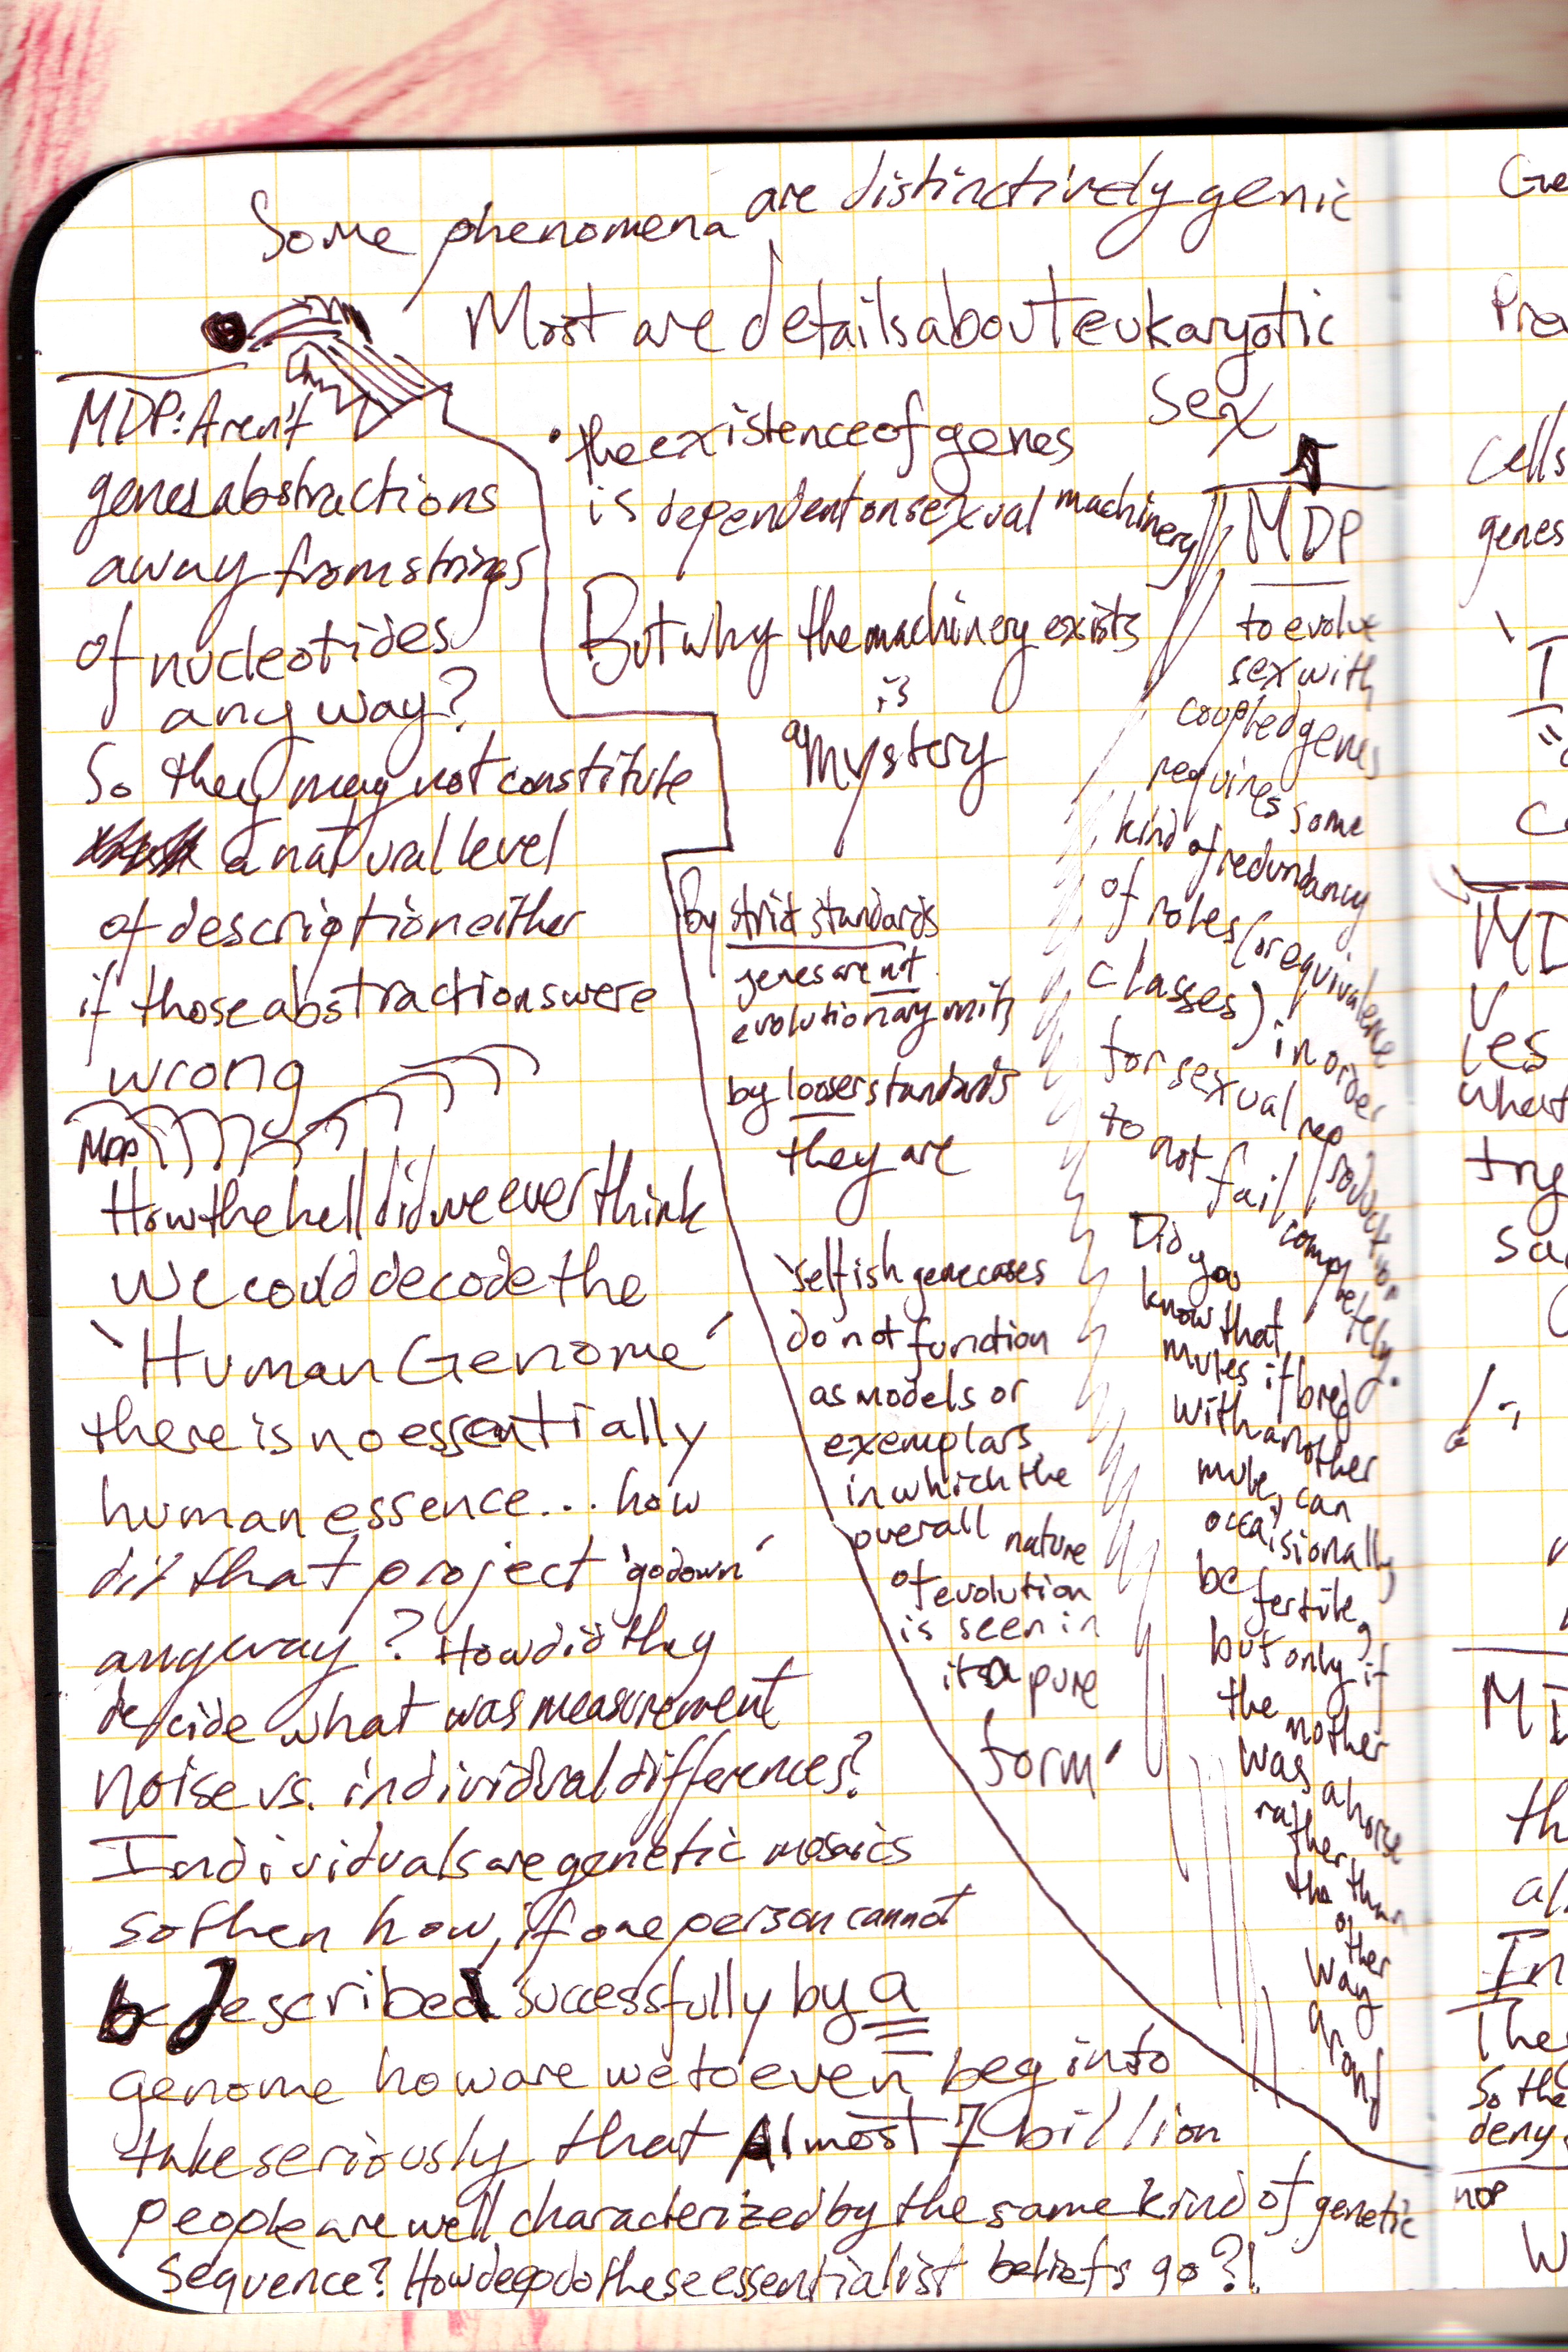 Some phenomena are distinctively genic
Most are details about eukaryotic
sex
• the existence of genes
is dependent on sexual machinery
But why the machinery exists
is
a mystery
by strict standards
genes are not
evolutionary units
by looser standards
they are
'selfish gene cases
do not function
as models or
exemplars
in which the
overall nature
of evolution
is seen in
its pure
form'
MDP: Aren't
genes abstractions
away from strings
of nucleotides
anyway?
So they may not constitute
a natural level
of description either
if those abstractions were
wrong
MDP
How the hell did we ever think
we could decode the
'Human Genome'
there is no essentially
human essence... how
did that project 'go down'
anyway? How did they
decide what was measurement
noise vs. individual differences?
Individuals are genetic mosaics
so then how, if one person cannot
be described successfully by a
genome how are we to even begin to
take seriously that Almost 7 billion
people are well characterized by the same kind of genetic
sequence? How deep do these essentialist beliefs go?!
MDP
to evolve
sex with
coupled genes
requires some
kind of redundancy
of roles (or equivalence
classes) in order
for sexual reproduction
to not fail completely.
Did you
know that
mules if bred
with another
mule, can
occaisionally
be fertile,
but only if
the mother
was a horse
rather than
the other
way around
Ge
Pre
cells
genes
I
MD
les
what
try
sa
MD
th
al
In
The
So the
deny
nor
W